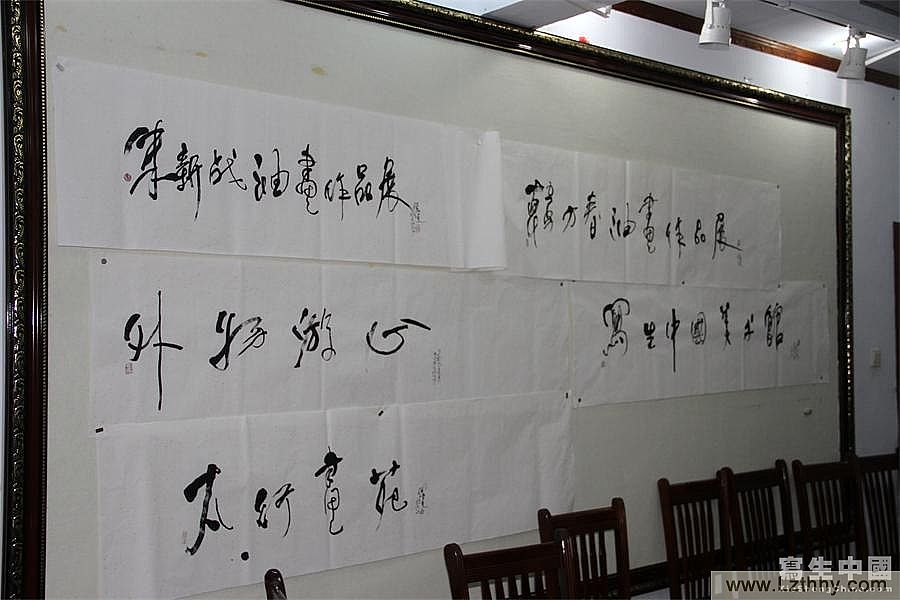 新战油畫作品展
方春油畫作品展
外物游心
寫生中國美术館
太行畫苑
寫生中國
www.Lzthhy.com